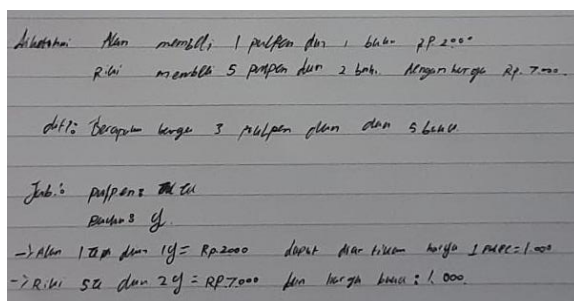 diketahui Alan membeli 1 pulpen dan 1 buku Rp 2000
Riki membeli 5 pulpen dan 2 buku. dengan harga Rp. 7.000.
dit?: Berapakah harga 3 pulpen dan dan 5 buku
Jab.: pulpen:
Buku: y.
→ Alan 1 dan 1y = Rp.2000 dapat diartikan harga 1 = 1.000
→ Riki 5 dan 2y = Rp.7000 dan harga buku: 1.000.